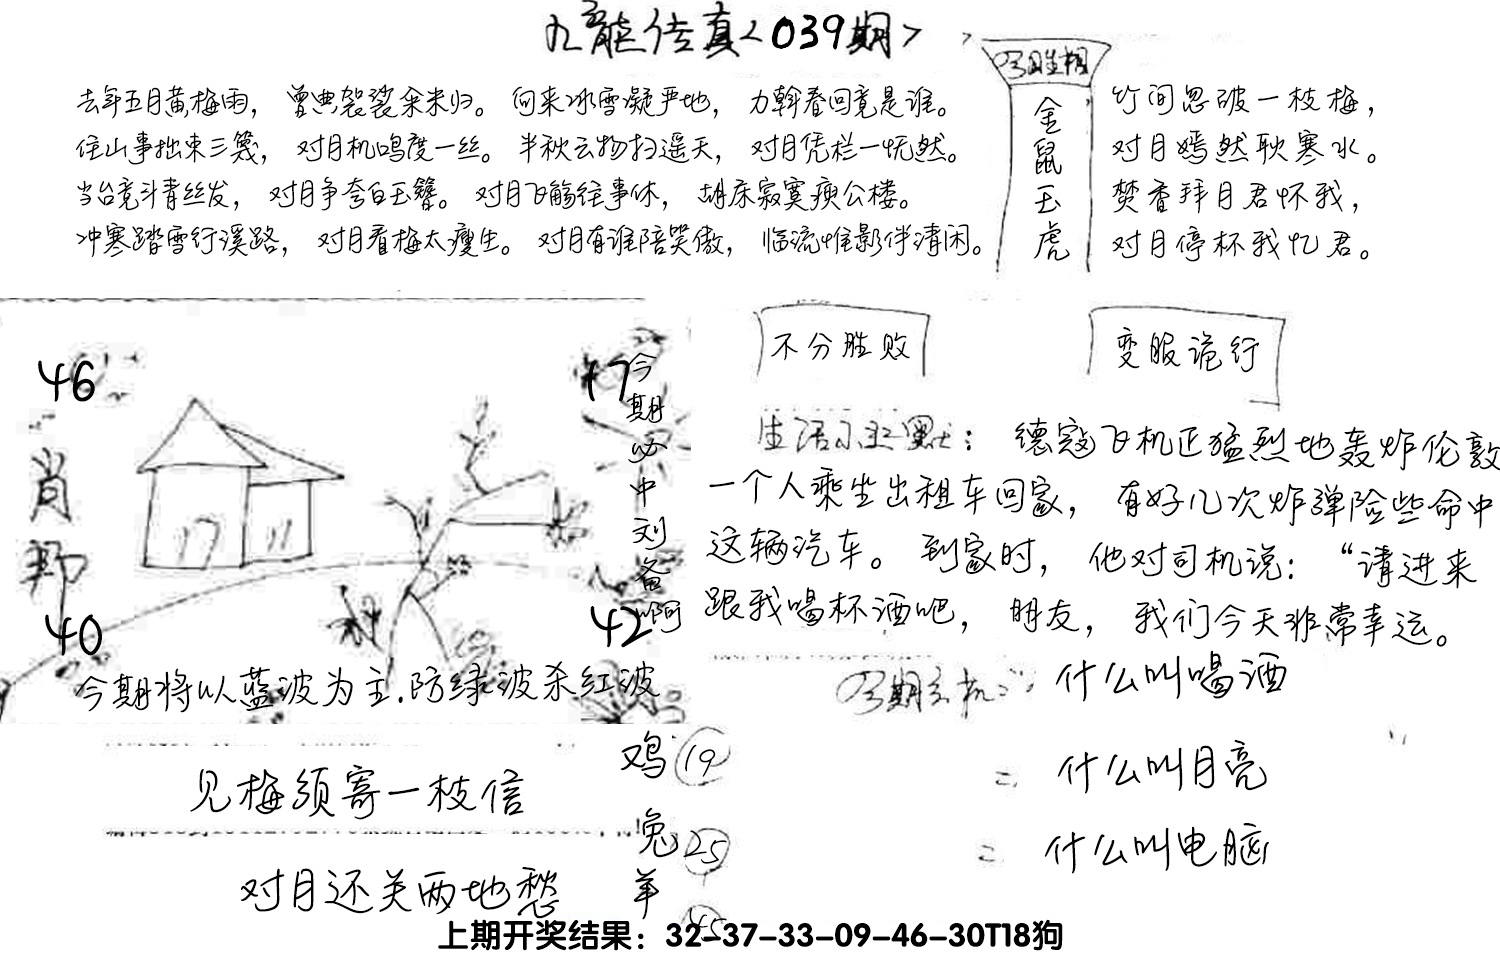 九龙传真<039期>
去年五月黄梅雨，曾典袈裟余米归。何来冰雪凝严地，力斡春回竟是谁。
住山事拙束三篾，对月机鸣度一丝。半秋云物扫遥天，对月凭栏一怃然。
当台竞斗青丝发，对月争夸白玉簪。对月飞觞往事休，胡床寂寞瘐公楼。
冲寒踏雪行溪路，对月看梅太瘦生。对月有谁陪笑傲，临流惟影伴清闲。
金鼠玉虎
竹间忽破一枝梅，
对月嫣然耿寒水。
焚香拜月君怀我，
对月停杯我忆君。
46
17
肖
40
42
今期必中刘备啊
今期将以蓝波为主.防绿波杀红波
不分胜败
变服诡行
生活小幽默：德寇飞机正猛烈地轰炸伦敦
一个人乘坐出租车回家，有好几次炸弹险些命中
这辆汽车。到家时，他对司机说：“请进来
跟我喝杯酒吧，朋友，我们今天非常幸运。
今期玄机：什么叫喝酒
什么叫月亮
什么叫电脑
见梅须寄一枝信
对月还关两地愁
鸡 19
兔 25
羊 45
上期开奖结果：32-37-33-09-46-30T18狗